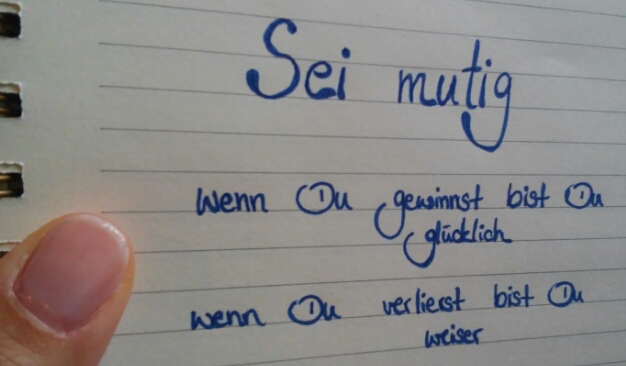 Sei mutig
wenn Du gewinnst bist Du
glücklich
wenn Du verlierst bist Du
weiser